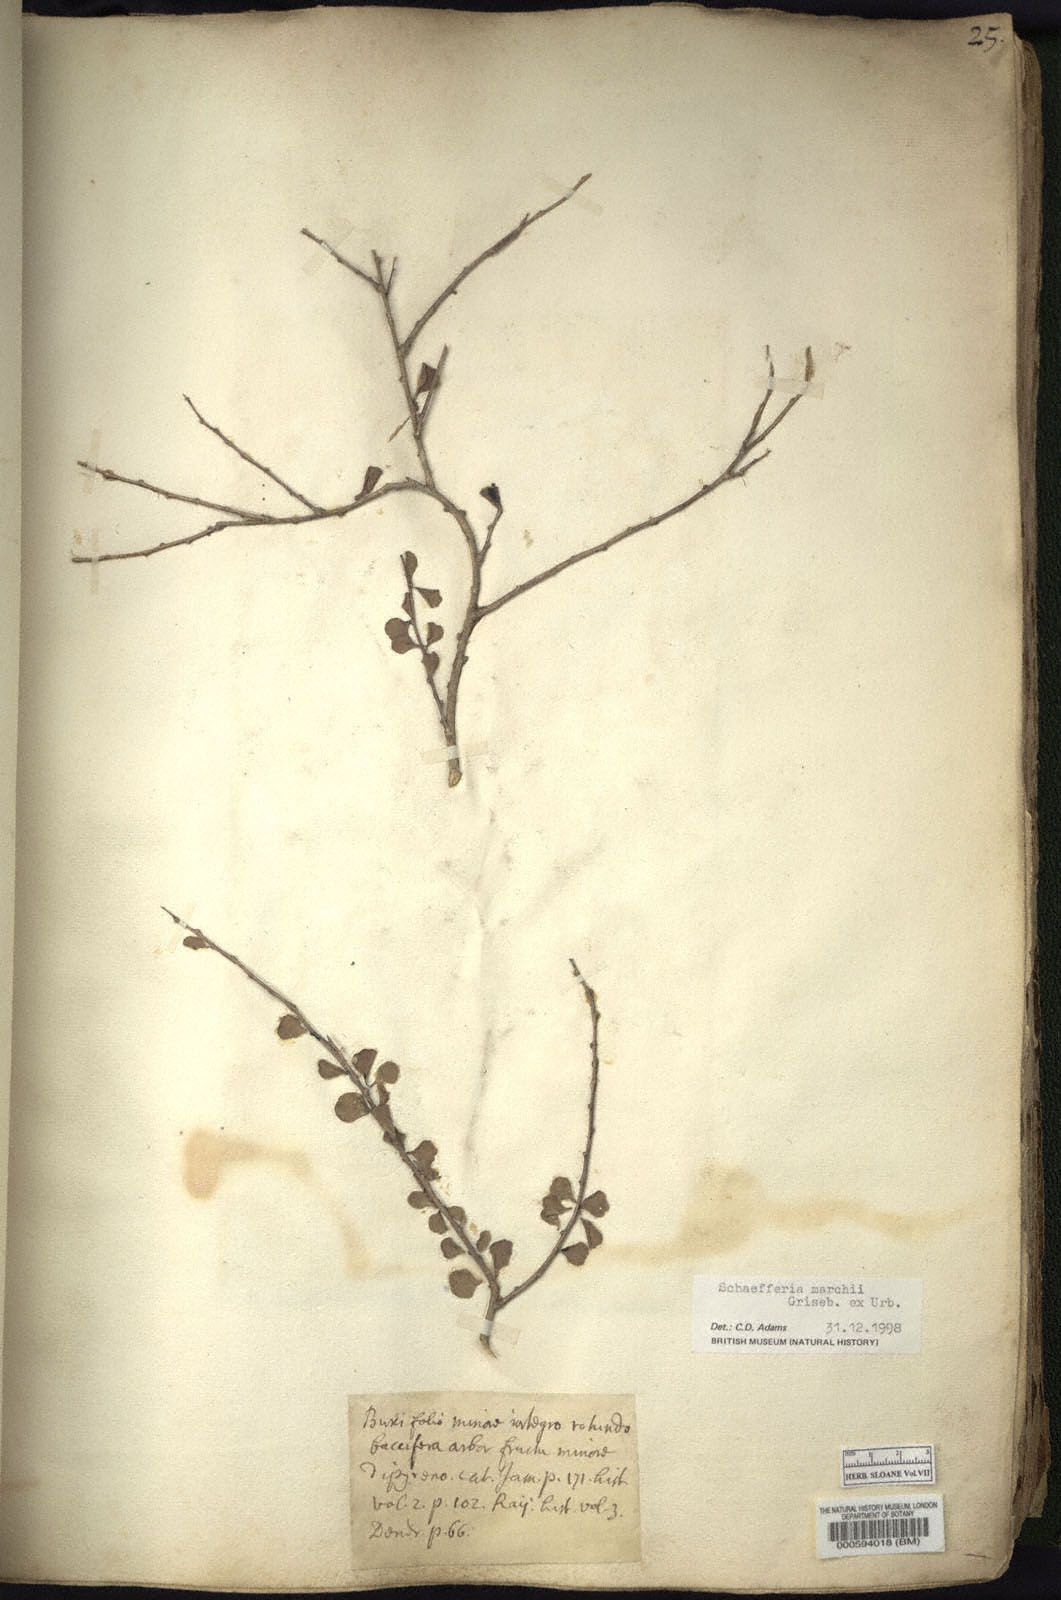 25.
Schaefferia marchii
Griseb. ex Urb.
Det.: C.D. Adams 31.12.1998
BRITISH MUSEUM (NATURAL HISTORY)
Buxi folio minore integro rotundo
baccifera arbor fructu minore
dipyreno. cat. Jam. p. 171. hist.
vol. 2. p. 102. Raij. hist. vol. 3.
Dendr. p. 66.
HERB. SLOANE Vol. VII
THE NATURAL HISTORY MUSEUM, LONDON
DEPARTMENT OF BOTANY
000594018 (BM)